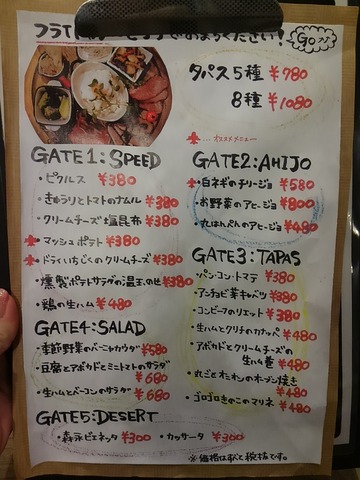 Go
タパス5種 ¥780
8種 ¥1080
…オススメメニュー
GATE1:SPEED
・ピクルス ¥380
・きゅうりとトマトのナムル ¥380
・クリームチーズ塩昆布 ¥380
・マッシュポテト ¥380
・ドライいちじくのクリームチーズ ¥380
・燻製ポテトサラダの温玉のせ ¥380
・鶏の生ハム ¥480
GATE2:AHIJO
・白ネギのチリージョ ¥580
・お野菜のアヒージョ ¥800
・丸はんぺんのアヒージョ ¥480
GATE3:TAPAS
・パン・コン・トマテ ¥380
・アンチョビ芽キャベツ ¥380
・コンビーフのリエット ¥380
・生ハムとクリチのカナッペ ¥480
・アボカドとクリームチーズの
生ハム巻 ¥480
・丸ごとオニオンのオーブン焼き
¥480
・ゴロゴロきのこマリネ ¥480
GATE4:SALAD
・季節野菜のバーニャカウダ ¥580
・豆腐とアボカドとミニトマトのサラダ
¥680
・生ハムとベーコンのサラダ
¥680
GATE5:DESERT
・森永ビエネッタ ¥300 ・カッサータ ¥300
※価格はすべて税抜です。